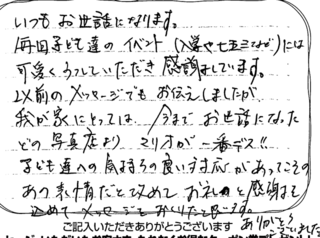 いつもお世話になります。
毎回子ども達のイベント(入学や七五三など)には
可愛くうつしていただき感謝しています。
以前のメッセージでもお伝えしましたが
我が家にとっては、今までお世話になった
どの写真店よりマリオが一番デス!!
子ども達への気持ちの良い対応があってこその
あの表情だと改めてお礼と感謝を
込めてメッセージをおくりたと思います。
ありがとうございます
ご記入いただきありがとうございます